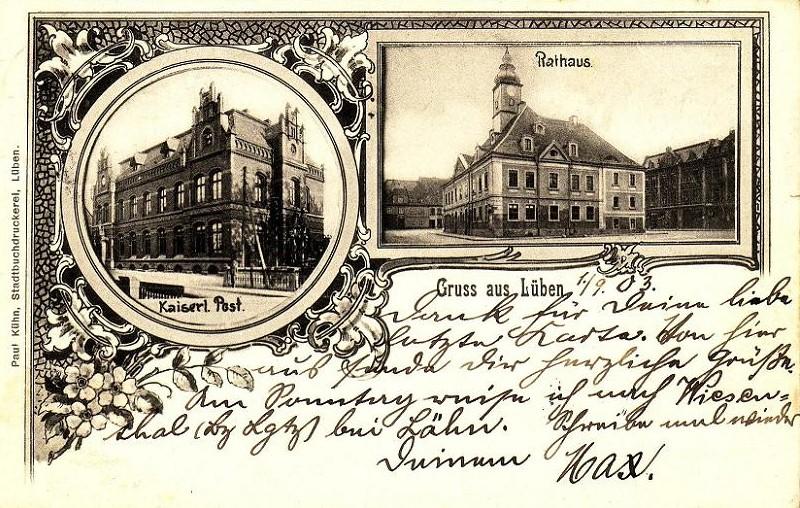 Paul Kühn, Stadtbuchdruckerei, Lüben.
Kaiserl. Post.
Rathaus.
Gruss aus Lüben
1/9. 03.
Dank für Deine liebe
letzte Karte. Von hier
aus sende dir herzliche Grüße.
Am Sonntag reise ich nach Wiesen-
thal (Bz Lgtz) bei Lähn. Schreibe mal wieder
Deinem Max.